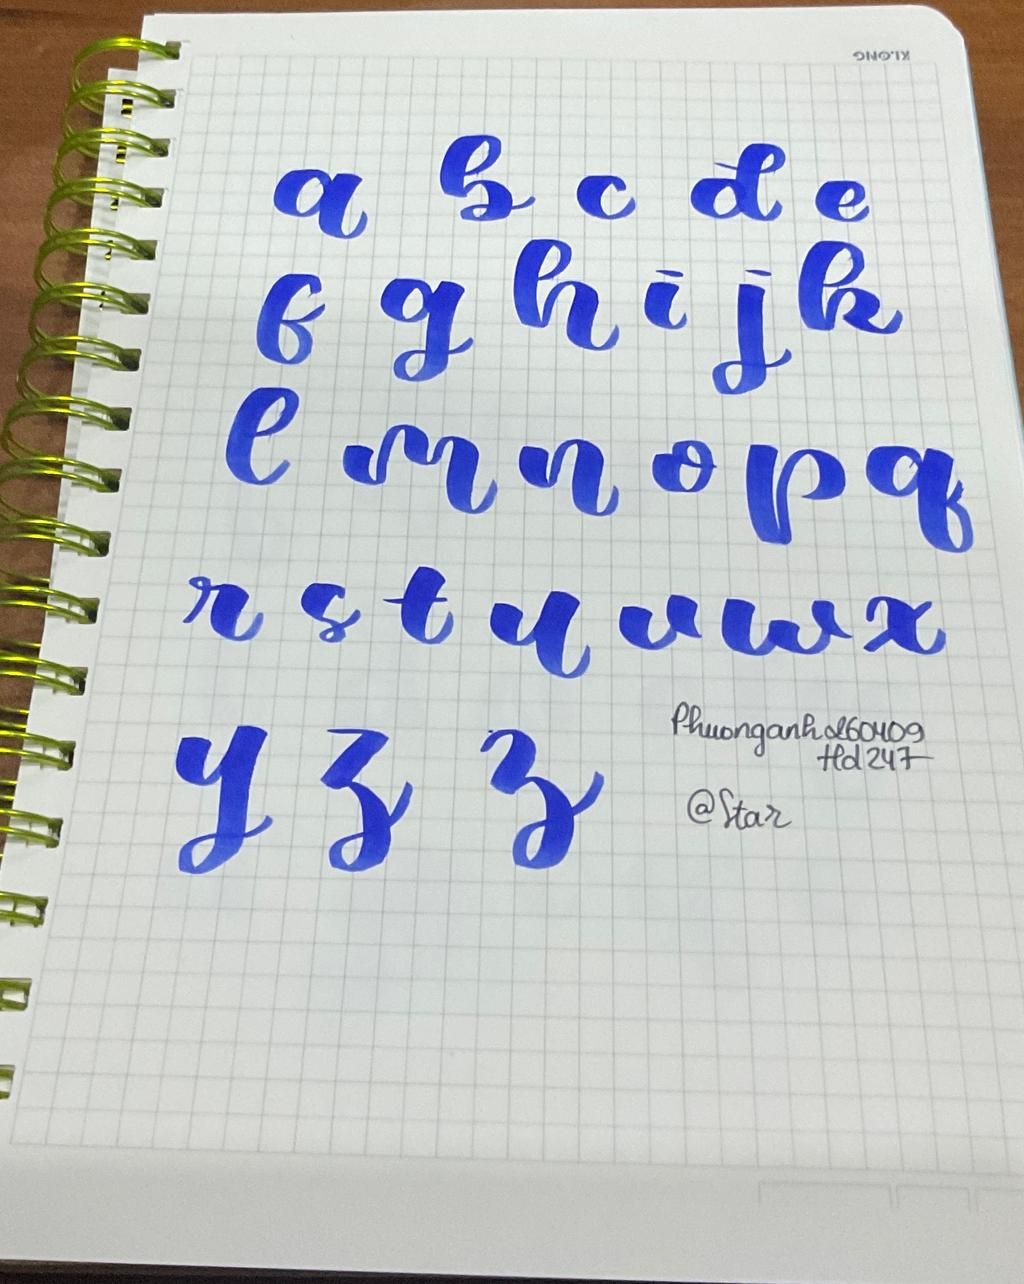 KLONG
a b c d e
f g h i j k
l m n o p q
r s t u v w x
y z z
Phuonganhd260409
Hd247
@Star